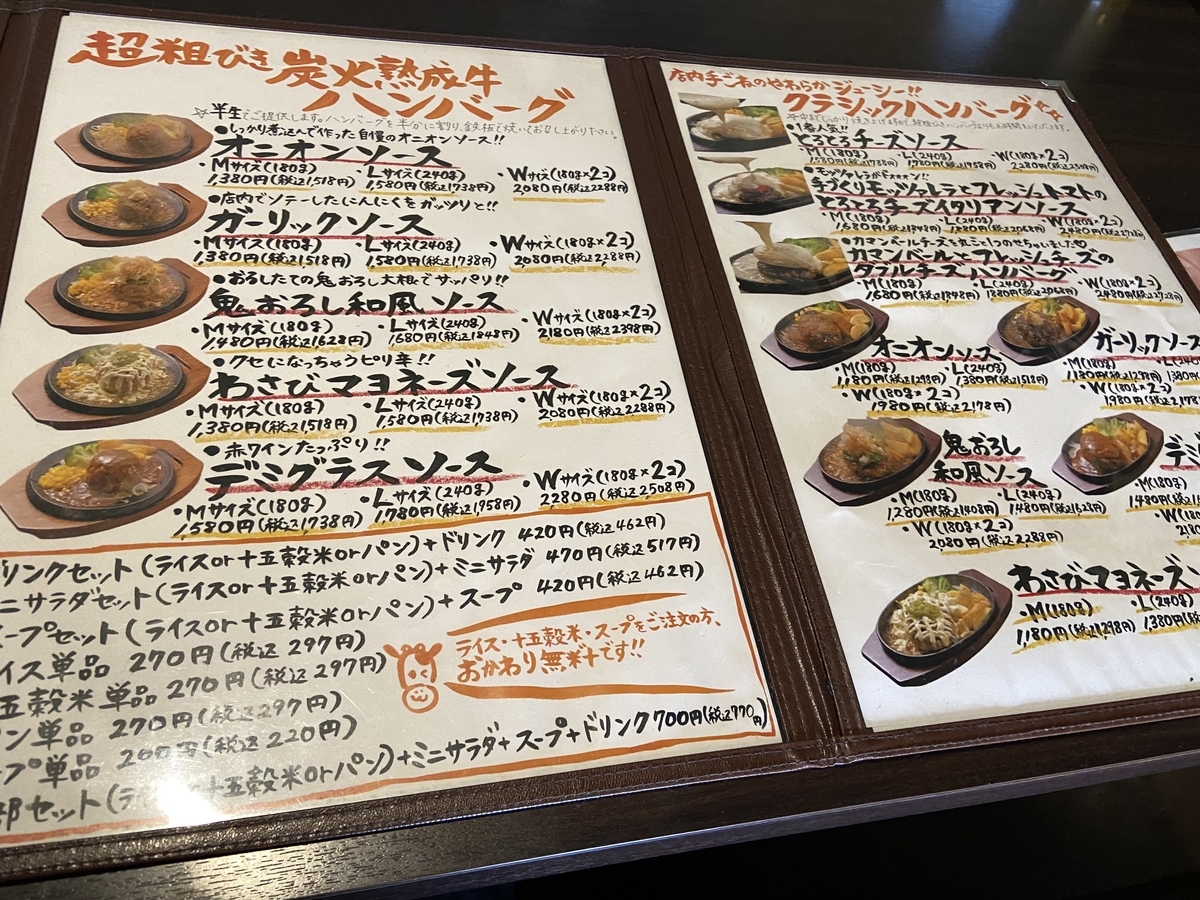 超粗びき炭火熟成牛
ハンバーグ
☆半生でご提供します。ハンバーグを半分に割り、鉄板で焼いてお召し上がり下さい。
・しっかり煮込んで作った自慢のオニオンソース!!
オニオンソース
・Mサイズ(180g) ・Lサイズ(240g) ・Wサイズ(180g×2コ)
1,380円(税込1,518円) 1,580円(税込1,738円) 2,080円(税込2,288円)
・店内でソテーしたにんにくをガッツリと!!
ガーリックソース
・Mサイズ(180g) ・Lサイズ(240g) ・Wサイズ(180g×2コ)
1,380円(税込1,518円) 1,580円(税込1,738円) 2,080円(税込2,288円)
・おろしたての鬼おろし大根でサッパリ!!
鬼おろし和風ソース
・Mサイズ(180g) ・Lサイズ(240g) ・Wサイズ(180g×2コ)
1,480円(税込1,628円) 1,680円(税込1,848円) 2,180円(税込2,398円)
・クセになっちゃうピリ辛!!
わさびマヨネーズソース
・Mサイズ(180g) ・Lサイズ(240g) ・Wサイズ(180g×2コ)
1,380円(税込1,518円) 1,580円(税込1,738円) 2,080円(税込2,288円)
・赤ワインたっぷり!!
デミグラスソース
・Mサイズ(180g) ・Lサイズ(240g) ・Wサイズ(180g×2コ)
1,580円(税込1,738円) 1,780円(税込1,958円) 2,280円(税込2,508円)
リンクセット(ライスor十五穀米orパン)+ドリンク 420円(税込462円)
ニサラダセット(ライスor十五穀米orパン)+ミニサラダ 470円(税込517円)
ープセット(ライスor十五穀米orパン)+スープ 420円(税込462円)
イス単品 270円(税込297円)
五穀米単品 270円(税込297円)
ン単品 270円(税込297円)
ープ単品 200円(税込220円)
ライス・十五穀米・スープをご注文の方、
おかわり無料です!!
部セット(ライスor十五穀米orパン)+ミニサラダ+スープ+ドリンク 700円(税込770円)
店内手ごねのやわらかジューシー!!
クラシックハンバーグ☆
・1番人気!!
とろとろチーズソース
・M(180g) ・L(240g) ・W(180g×2コ)
1,580円(税込1,738円) 1,780円(税込1,958円) 2,280円(税込2,508円)
手づくりモッツァレラとフレッシュトマトの
とろとろチーズイタリアンソース
・M(180g) ・L(240g) ・W(180g×2コ)
1,680円(税込1,848円) 1,880円(税込2,068円) 2,480円(税込2,728円)
・カマンベールチーズを丸ごと1つのせちゃいました♡
カマンベールとフレッシュチーズの
ダブルチーズハンバーグ
・M(180g) ・L(240g) ・W(180g×2コ)
1,680円(税込1,848円) 1,880円(税込2,068円) 2,480円(税込2,728円)
オニオンソース
・M(180g) ・L(240g)
1,180円(税込1,298円) 1,380円(税込1,518円)
・W(180g×2コ)
1,980円(税込2,178円)
ガーリックソース
・M(180g) ・L(240
1,180円(税込1,298円) 1,380円
・W(180g×2コ)
1,980円(税込2,178
鬼おろし
和風ソース
・M(180g) ・L(240g)
1,280円(税込1,408円) 1,480円(税込1,628円)
・W(180g×2コ)
2,080円(税込2,288円)
デミ
・M(180g)
・W(180
わさびマヨネーズ
・M(180g) ・L(240g)
1,180円(税込1,298円) 1,380円(税込